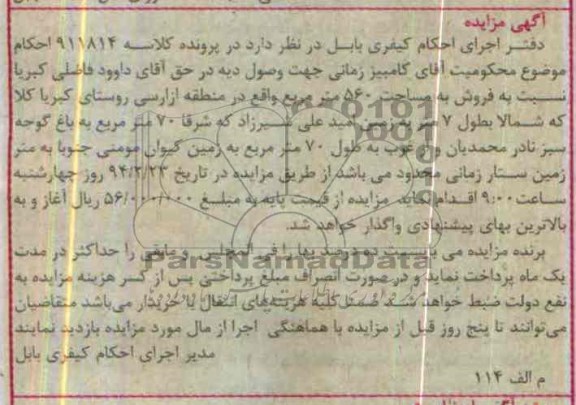 آگهی مزایده
دفتـر اجرای احکام کیفری بابـل در نظر دارد در پرونده کلاسـه ۹۱۱۸۱۴ احکام
موضوع محکومیت آقای کامبیز زمانی جهت وصول دیه در حق آقای داوود فاضلی کبریا
نسـبت به فروش به مساحت ۵۶۰ متر مربع واقع در منطقه ازارسی روستای کبریا کلا
که شـمالا بطول ۷ متر به زمین امید علی شـیرزاد که شرقا ۷۰ متر مربع به باغ گوجه
سبز نادر محمدیان و از غروب به طول ۷۰ متر مربع به زمین کیوان مومنی جنوبا به متر
زمین سـتار زمانی محدود می باشد از طریق مزایده در تاریخ ۹۴/۲/۲۳ روز چهارشنبه
سـاعت ۹:۰۰ اقـدام نماید. مزایده از قیمت پایه به مبلـغ ۵۶/۰۰۰/۰۰۰ ریال آغاز و به
بالاترین بهای پیشنهادی واگذار خواهد شد.
برنده مزایده می بایسـت ده درصد بها را فی المجلس و مابقی را حداکثر در مدت
یک ماه پرداخت نماید و در صورت انصراف مبلغ پرداختی پس از کسر هزینه مزایده به
نفع دولت ضبط خواهد شـد ضمنا کلیه هزینه‌های انتقال با خریدار می‌باشد متقاضیان
می‌توانند تا پنج روز قبل از مزایده با هماهنگی اجرا از مال مورد مزایده بازدید نمایند
مدیر اجرای احکام کیفری بابل
م الف ۱۱۴
ParsNamadData